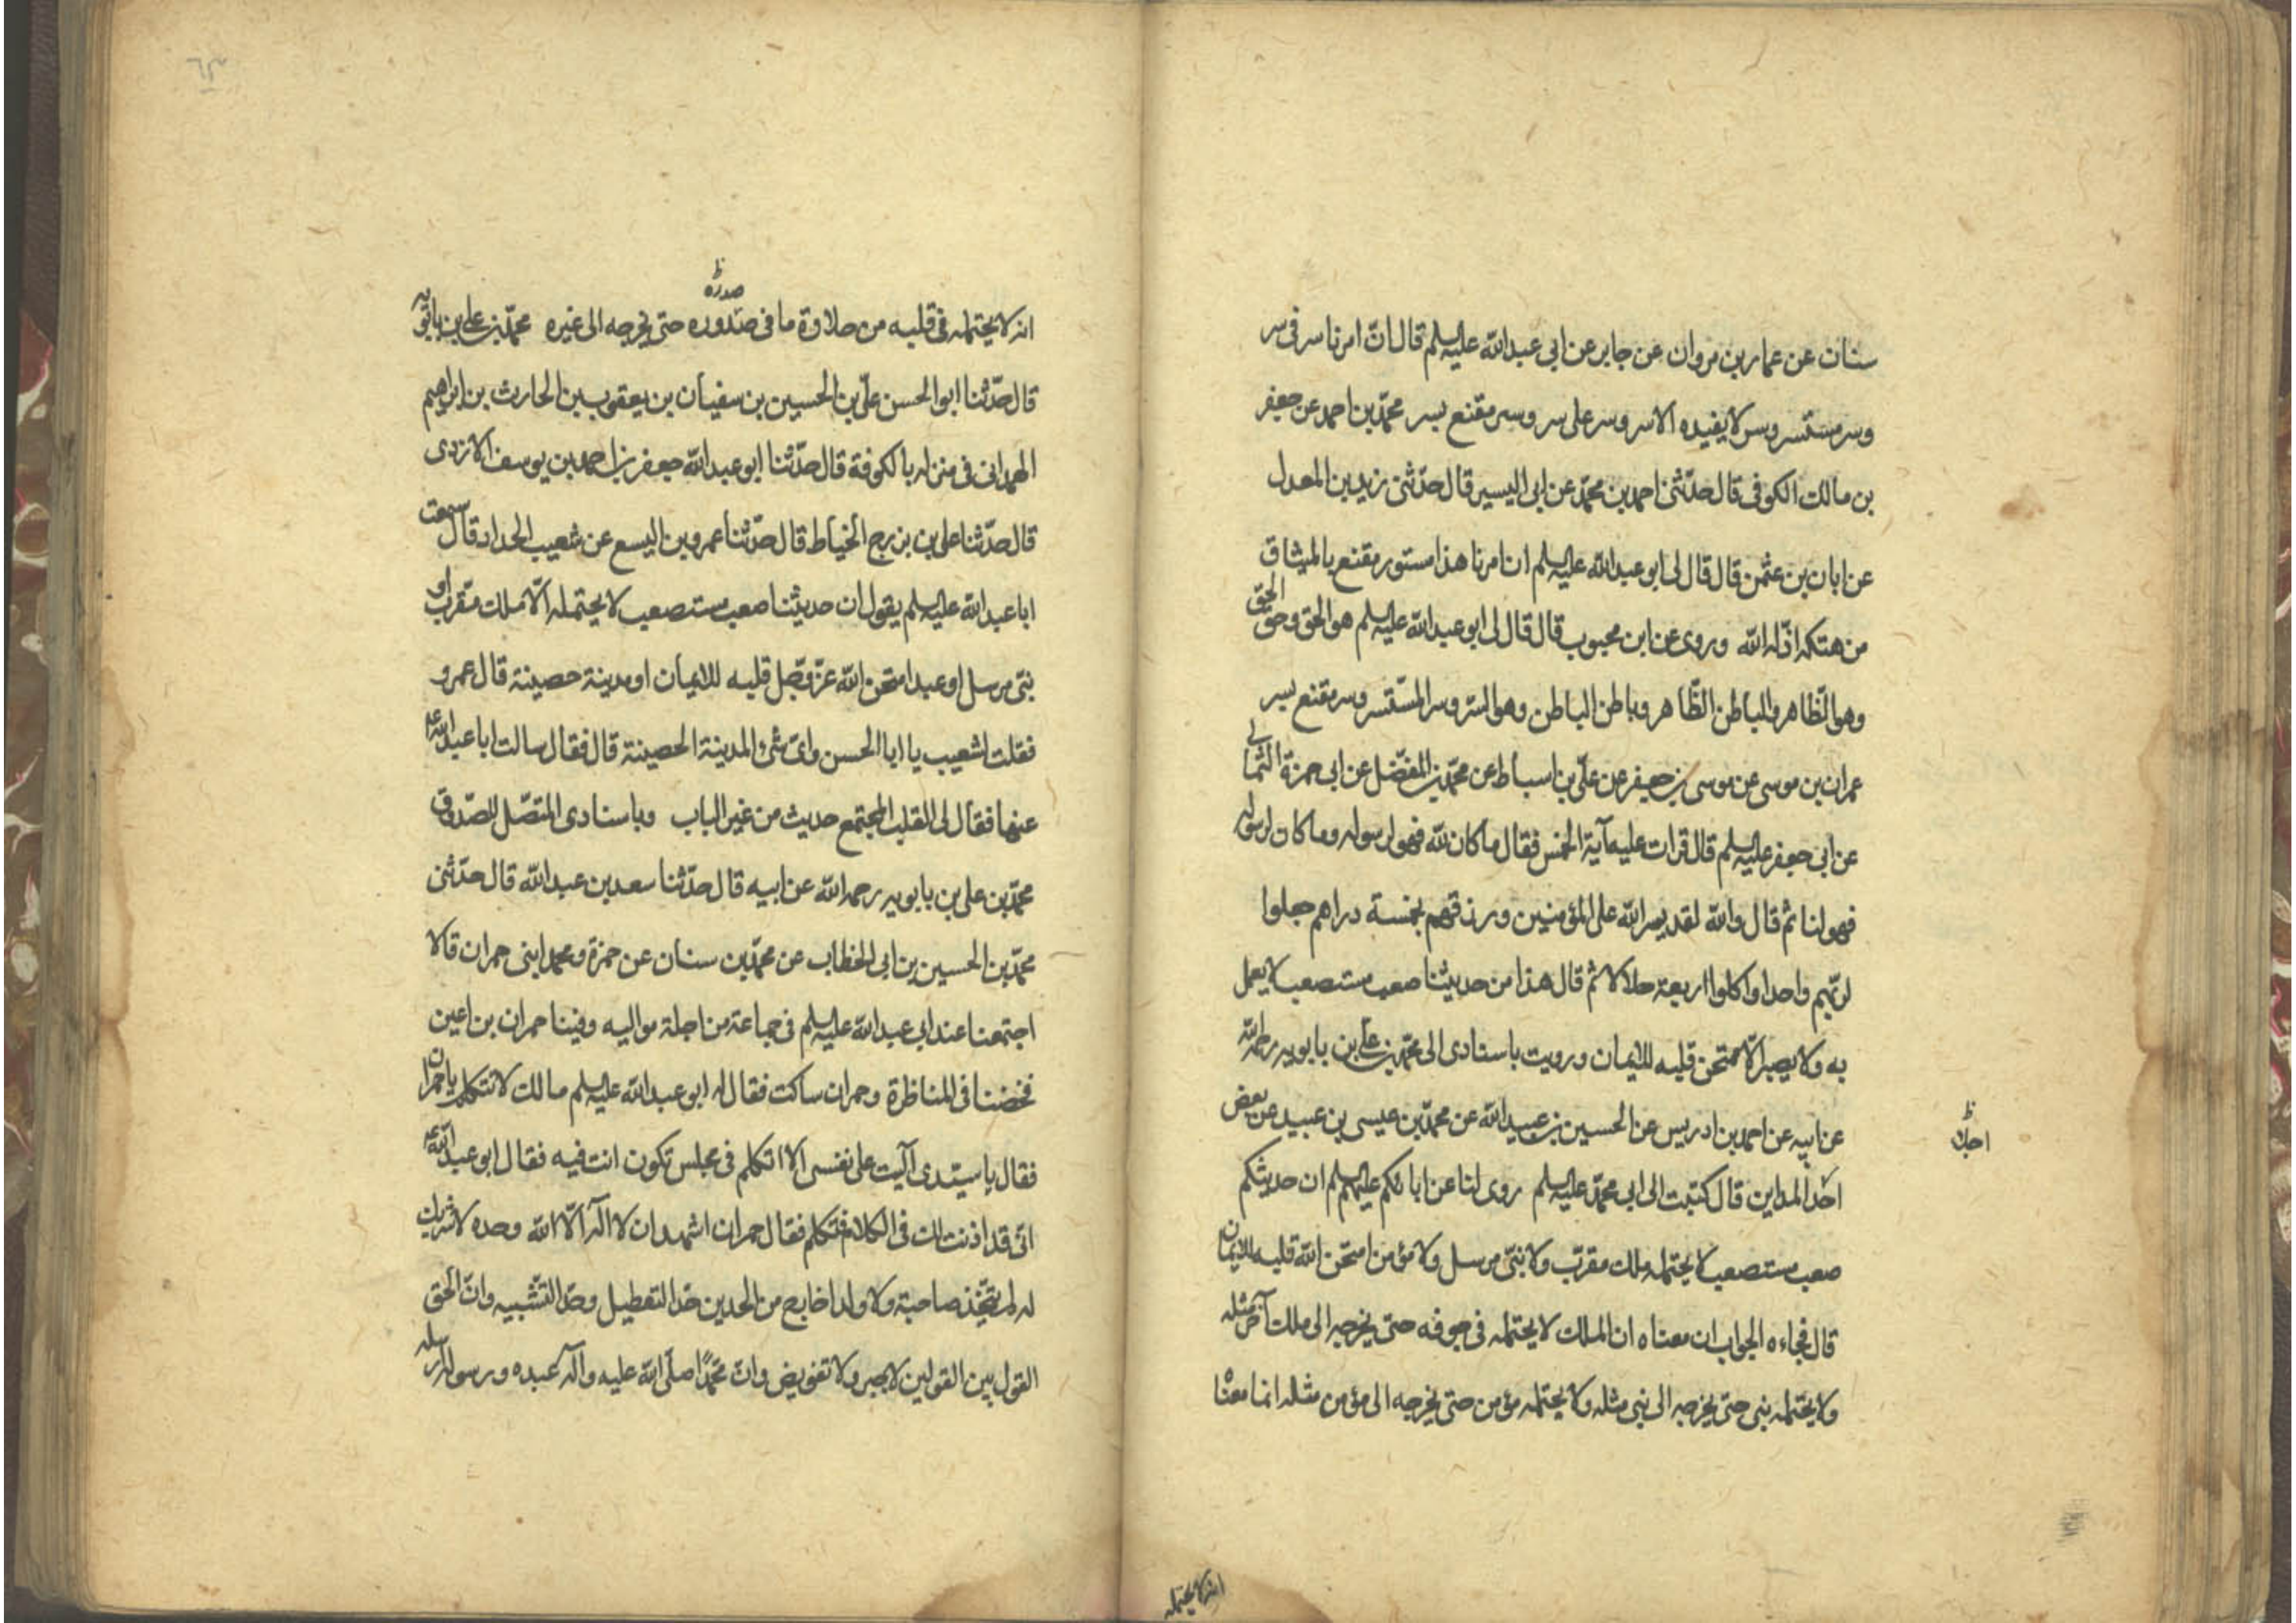 سنان عن عمار بن مروان عن جابر عن ابى عبدالله عليه السلم قال انّ امرنا سر فى سر
وسر مستسر وسر لا يفيده الا سر وسر على سر وسر مقنع بسر محمّد بن احمد عن جعفر
بن مالك الكوفى قال حدّثنى احمد بن محمّد عن ابى اليسير قال حدّثنى زيد بن المعدل
عن ابان بن عثمن قال قال لى ابو عبدالله عليه السلم ان امرنا هذا مستور مقنع بالميثاق
من هتكه اذلّه الله وروى عن ابن محبوب قال قال لى ابو عبدالله عليه السلم هو الحق وحق الحق
وهو الظّاهر والباطن الظّاهر وباطن الباطن وهو السّر وسر المسّتسر وسر مقنع بسر
عمران بن موسى عن موسى بن جعفر عن علىّ بن اسباط عن محمّد بن المفضّل عن ابى حمزة الثمالى
عن ابى جعفر عليه السلم قال قرات عليه آية الخمس فقال ما كان لله فهو لرسوله وما كان لرسوله
فهو لنا ثم قال والله لقد يسر الله على المؤمنين ورزقهم بخمسة دراهم جعلوا
لربّهم واحدا واكلوا اربعة حلالا ثم قال هذا من حديثنا صعب مستصعب لا يعمل
به ولا يصبر الّا ممتحن قلبه للايمان ورويت باسنادى الى محمّد بن على بن بابويه رحمه الله
عن ابيه عن احمد بن ادريس عن الحسين بن عبيد الله عن محمّد بن عيسى بن عبيد عن بعض
ظ
اهل
اخذ المداين قال كتبت الى ابى محمّد عليه السلم روى لنا عن ابائكم عليهم السلم ان حديثكم
صعب مستصعب لا يحتمله ملك مقرّب ولا نبّى مرسل ولا مؤمن امتحن الله قلبه للايمان
قال فجاءه الجواب ان معناه ان الملك لا يحتمله فى جوفه حتى يخرجه الى ملك آخر مثله
ولا يحتمله نبى حتى يخرجه الى نبى مثله ولا يحتمله مؤمن حتى يخرجه الى مؤمن مثله انما معناه
انه لا يحتمله
ظ
صدره
انه لا يحتمله فى قلبه من حلاوة ما فى صدوره حتى يخرجه الى غيره محمّد بن على بن بابويه
قال حدّثنا ابو الحسن علىّ بن الحسين بن سفيان بن يعقوب بن الحارث بن ابراهيم
الهمدانى فى منزله بالكوفة قال حدّثنا ابو عبدالله جعفر بن احمد بن يوسف الازدى
قال حدّثنا على بن بزرج الخياط قال حدّثنا عمرو بن اليسع عن شعيب الحداد قال سمعت
ابا عبدالله عليه السلم يقول ان حديثنا صعب مستصعب لا يحتمله الّا ملك مقرب او
نبىّ مرسل او عبد امتحن الله عزّ وجّل قلبه للايمان او مدينة حصينة قال عمرو
فقلت لشعيب يا ابا الحسن واىّ شئ المدينة الحصينة قال فقال سالت ابا عبدالله ع
عنها فقال لى القلب المجتمع حديث من غير الباب وباسنادى المتصّل للصّدوق
محمّد بن على بن بابويه رحمه الله عن ابيه قال حدّثنا سعد بن عبدالله قال حدّثنى
محمّد بن الحسين بن ابى الخطاب عن محمّد بن سنان عن حمزة ومحمد ابنى حمران قالا
اجتمعنا عند ابى عبدالله عليه السلم فى جماعة من اجلة مواليه وفينا حمران بن اعين
فخضنا فى المناظرة وحمران ساكت فقال له ابو عبدالله عليه السلم مالك لا تتكلم يا حمران
فقال يا سيّدى آليت على نفسى الا اتكلم فى مجلس تكون انت فيه فقال ابو عبدالله ع
انى قد اذنت لك فى الكلام فتكلم فقال حمران اشهد ان لا اله الّا الله وحده لا شريك
له لم يتّخذ صاحبة ولا ولدا خارج من الحدين حّد التعطيل وحّد التشّبيه وانّ الحق
القول بين القولين لا جبر ولا تفويض وانّ محمّدًا صلّى الله عليه وآله عبده ورسوله ارسله